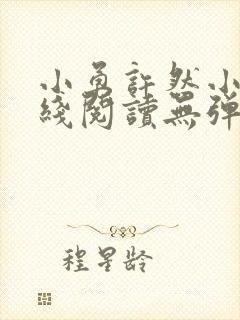 小勇許然小
綫閱讀無彈
程星齡